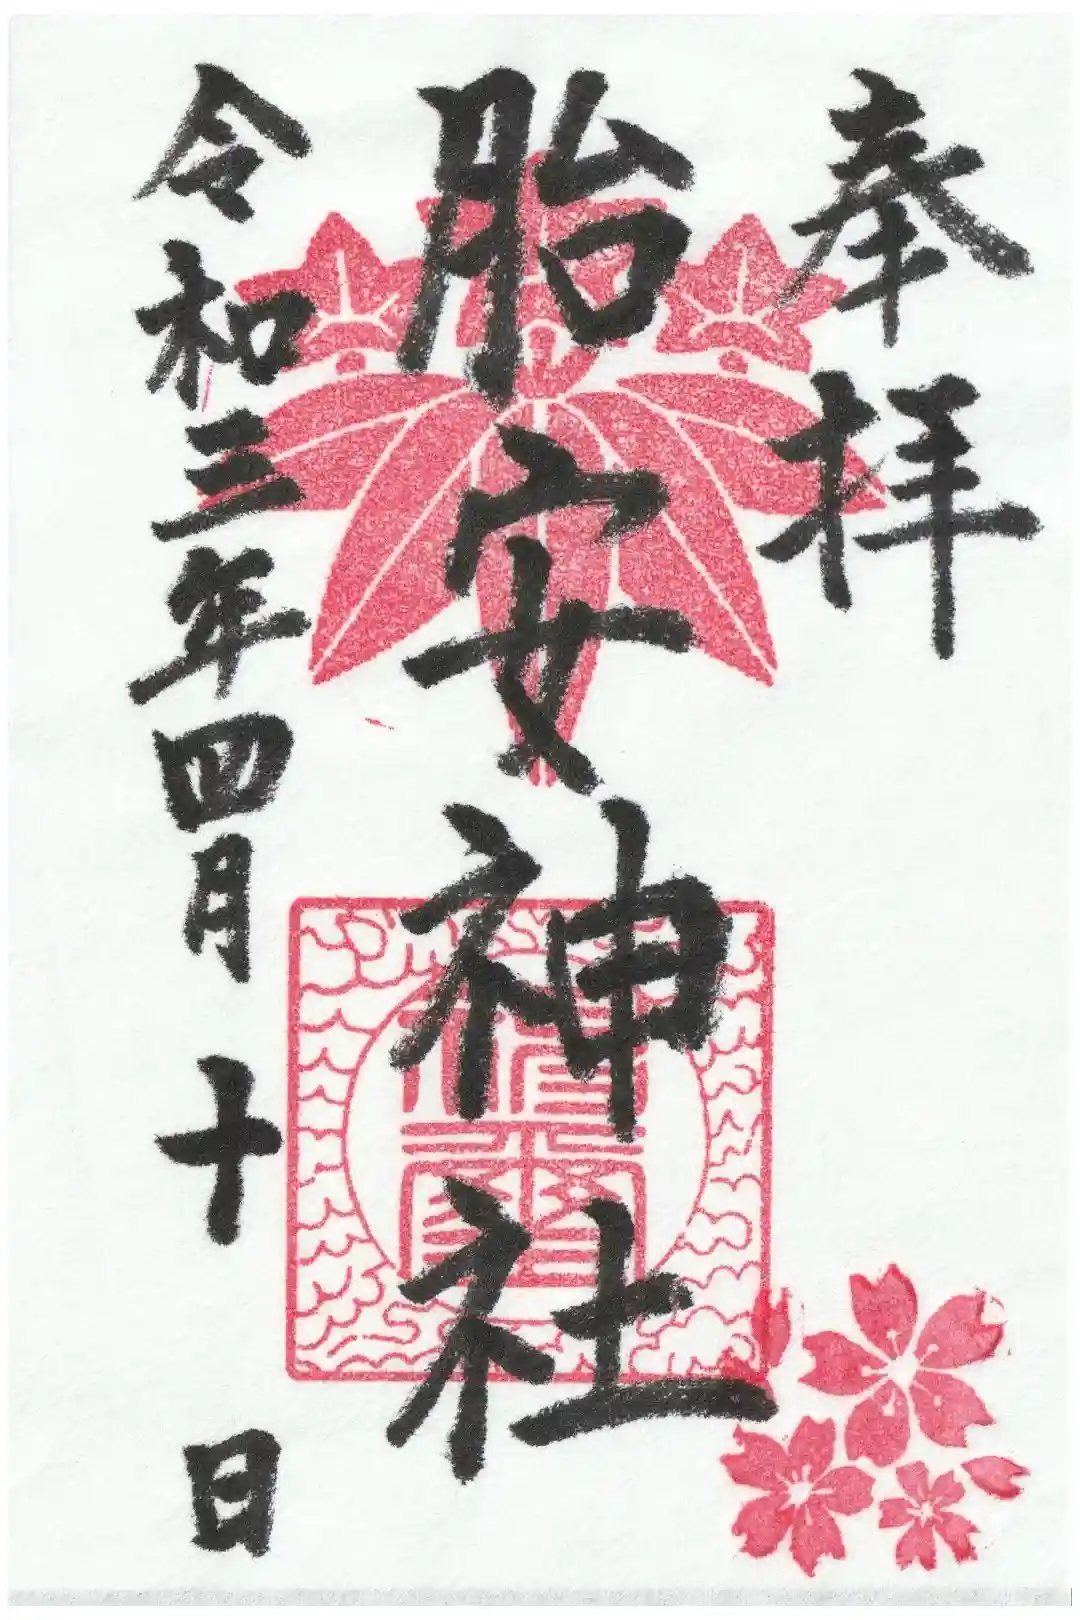 奉拝
胎安神社
令和三年四月十日